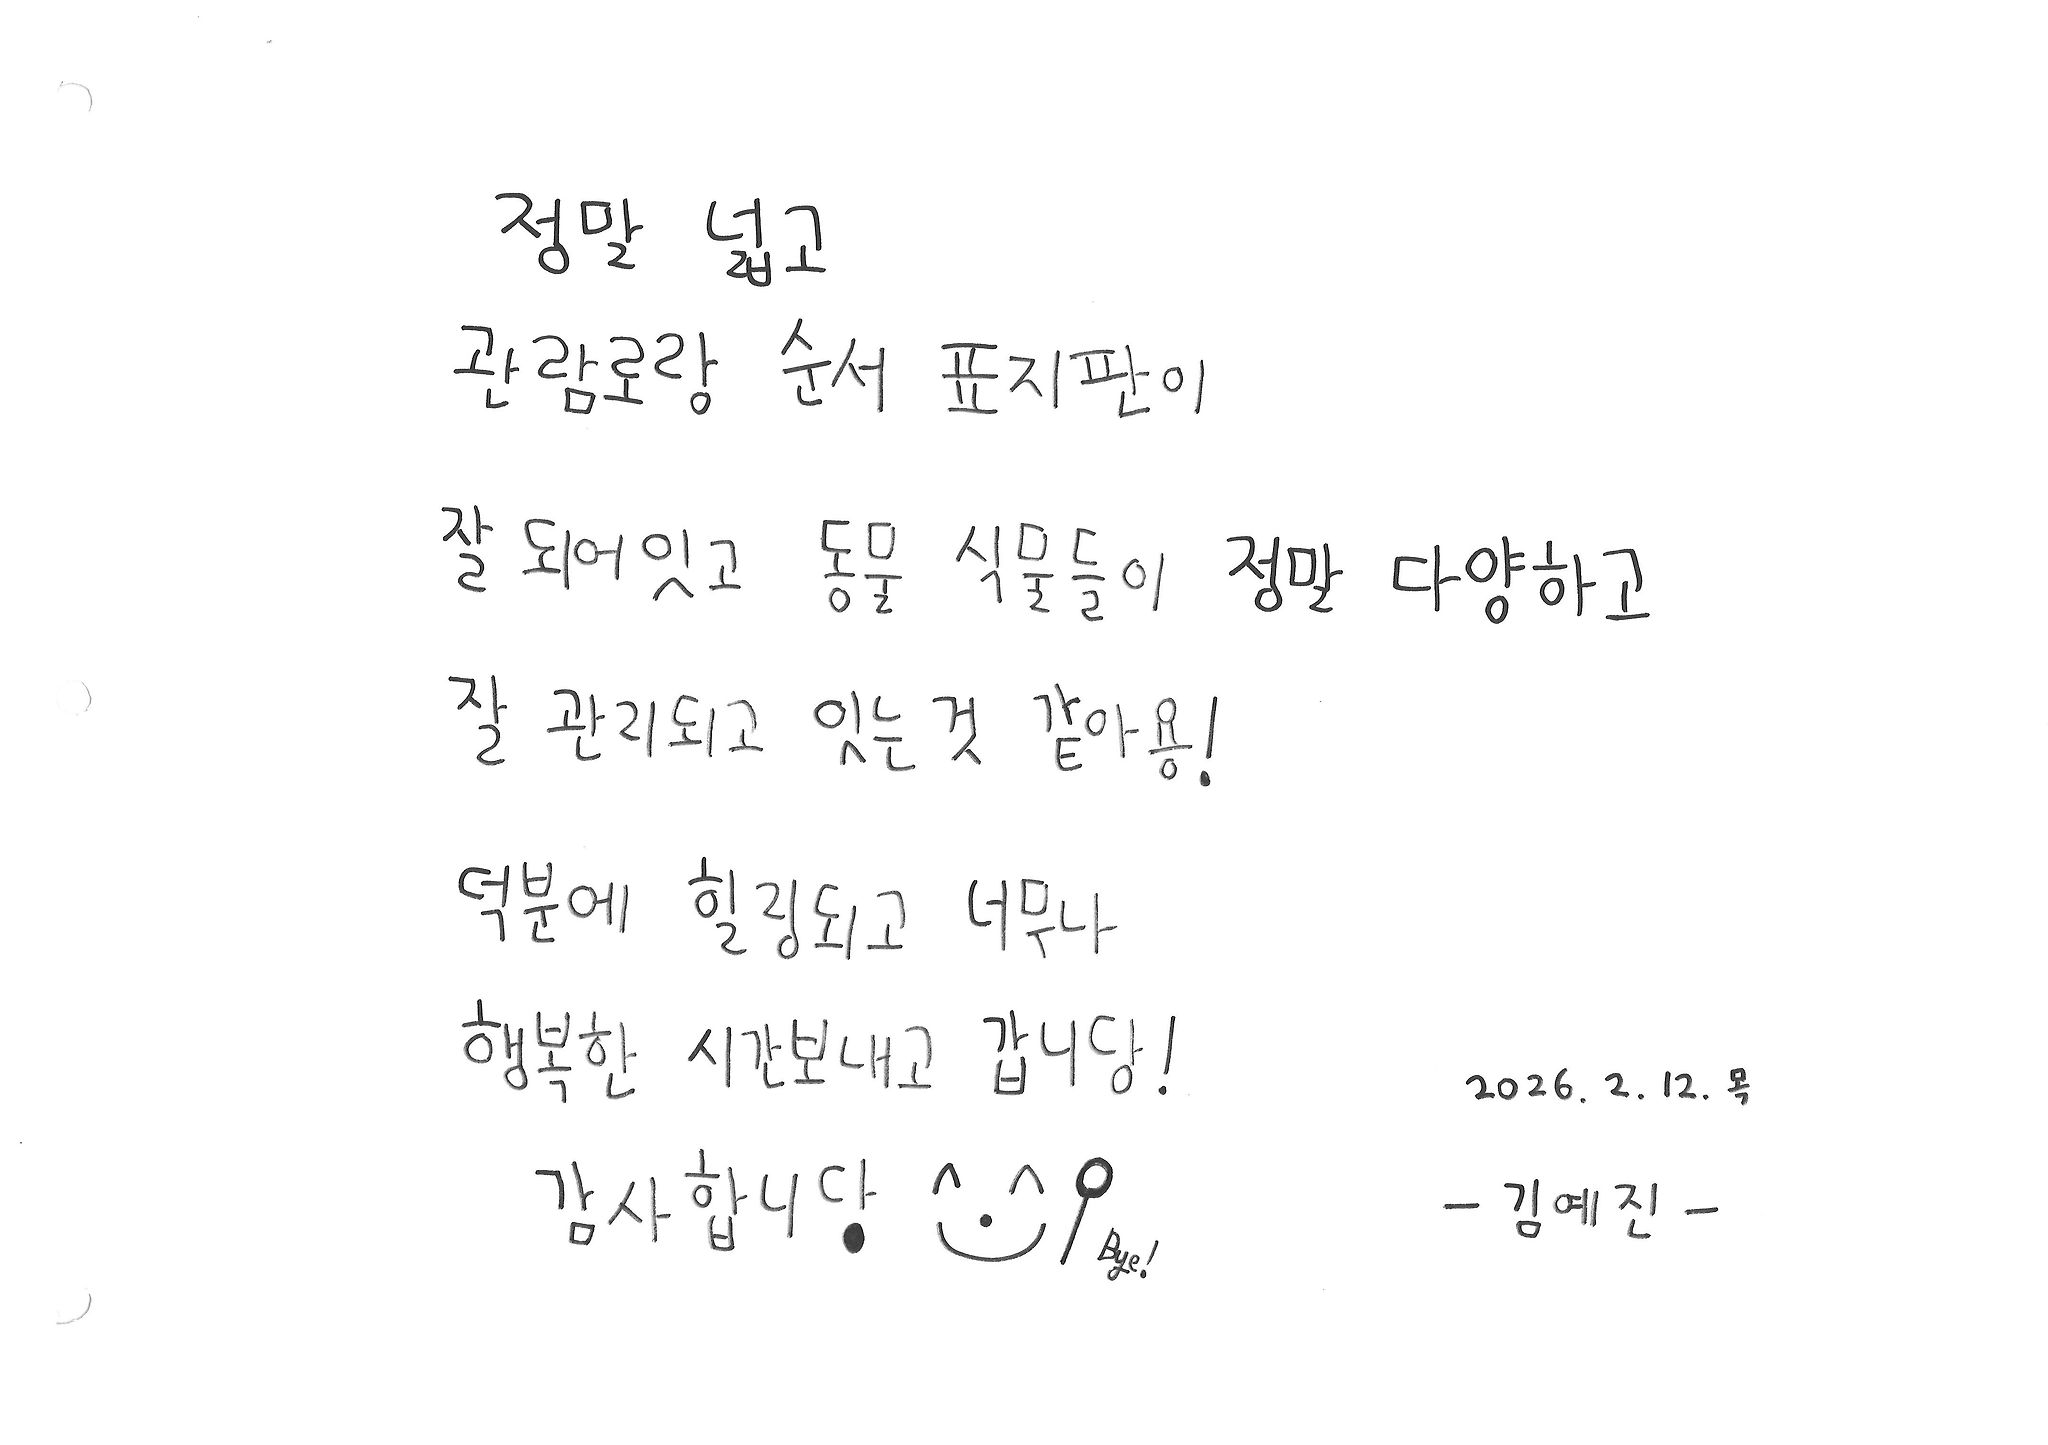 정말 넓고
관람로랑 순서 표지판이
잘 되어잇고 동물 식물들이 정말 다양하고
잘 관리되고 잇는것 같아용!
덕분에 힐링되고 너무나
행복한 시간보내고 갑니당!
2026. 2. 12. 목
감사합니당
Bye!
- 김예진 -